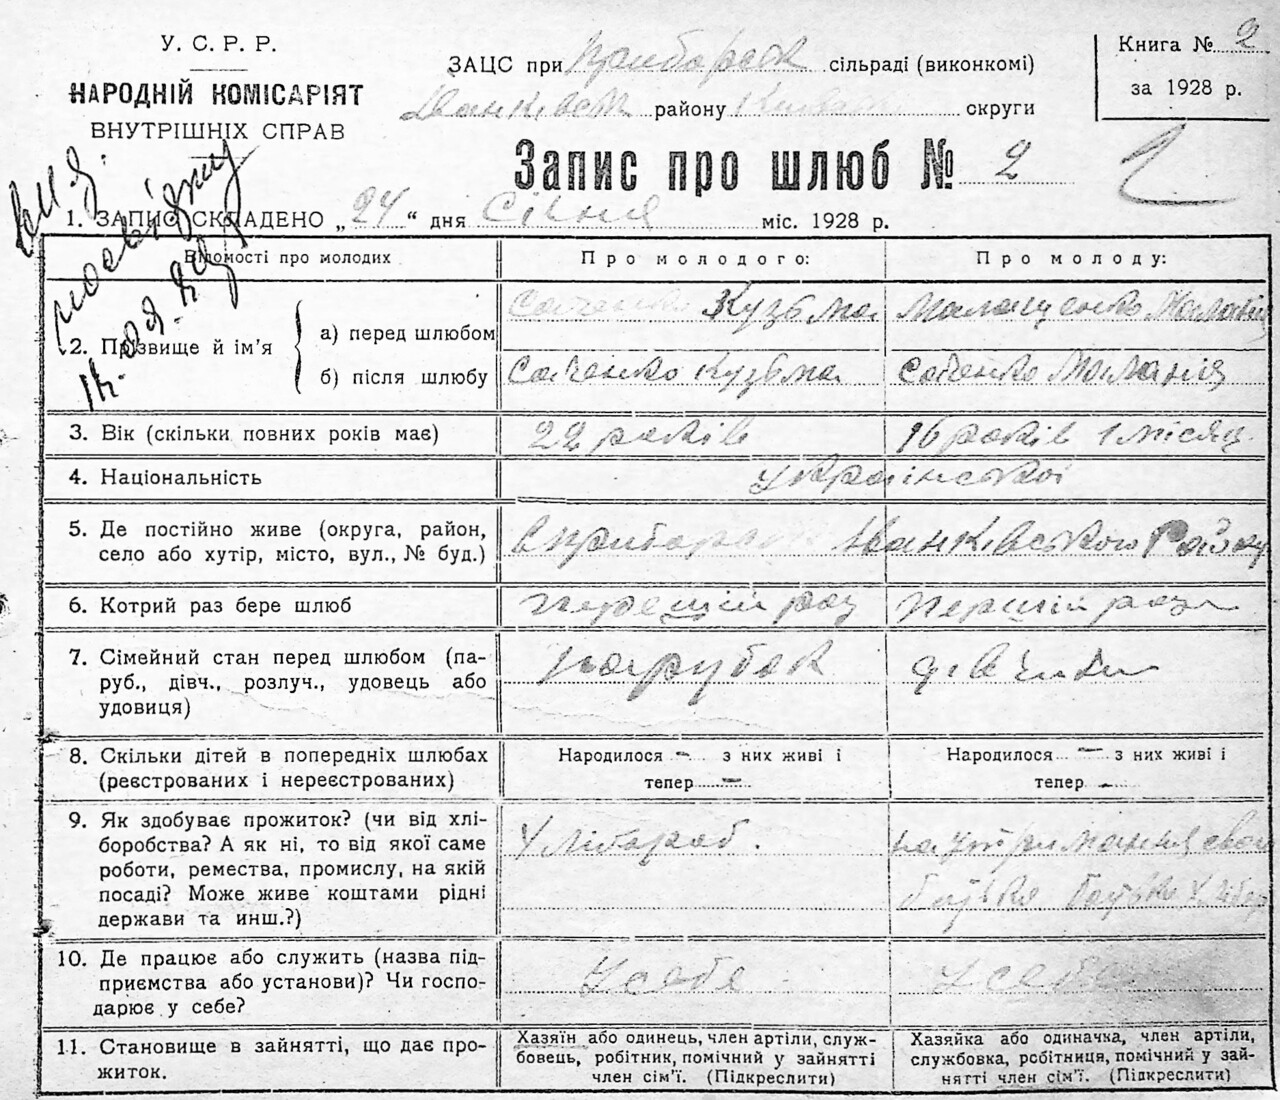 У. С. Р. Р.
НАРОДНІЙ КОМІСАРІЯТ
ВНУТРІШНІХ СПРАВ
ЗАЦС при Прибарськ сільраді (виконкомі)
Іванківськ району Київськ округи
Книга № 2
за 1928 р.
Запис про шлюб № 2
2
1. ЗАПИС СКЛАДЕНО „ 24 “ дня Січня міс. 1928 р.
Відомості про молодих
Про молодого:
Про молоду:
2. Прізвище й ім'я
а) перед шлюбом
Саченко Кузьма
Малащенко Маланія
б) після шлюбу
Саченко Кузьма
Саченко Маланія
3. Вік (скільки повних років має)
22 років
16 років 1 місяц.
4. Національність
української
5. Де постійно живе (округа, район, село або хутір, місто, вул., № буд.)
в Прибарськ Іванківського Району
6. Котрий раз бере шлюб
перший раз
перший раз
7. Сімейний стан перед шлюбом (паруб., дівч., розлуч., удовець або удовиця)
парубок
дівчина
8. Скільки дітей в попередніх шлюбах (реєстрованих і нереєстрованих)
Народилося – з них живі і
тепер –
Народилося – з них живі і
тепер –
9. Як здобуває прожиток? (чи від хліборобства? А як ні, то від якої саме роботи, ремества, промислу, на якій посаді? Може живе коштами рідні держави та инш.?)
Хлібороб.
на утриманню свого
батька батько Хлібор
10. Де працює або служить (назва підприємства або установи)? Чи господарює у себе?
У себе
У себе
11. Становище в зайнятті, що дає прожиток.
Хазяїн або одинець, член артіли, службовець, робітник, помічний у зайнятті член сім'ї. (Підкреслити)
Хазяйка або одиначка, член артіли, службовка, робітниця, помічний у зайнятті член сім'ї. (Підкреслити)